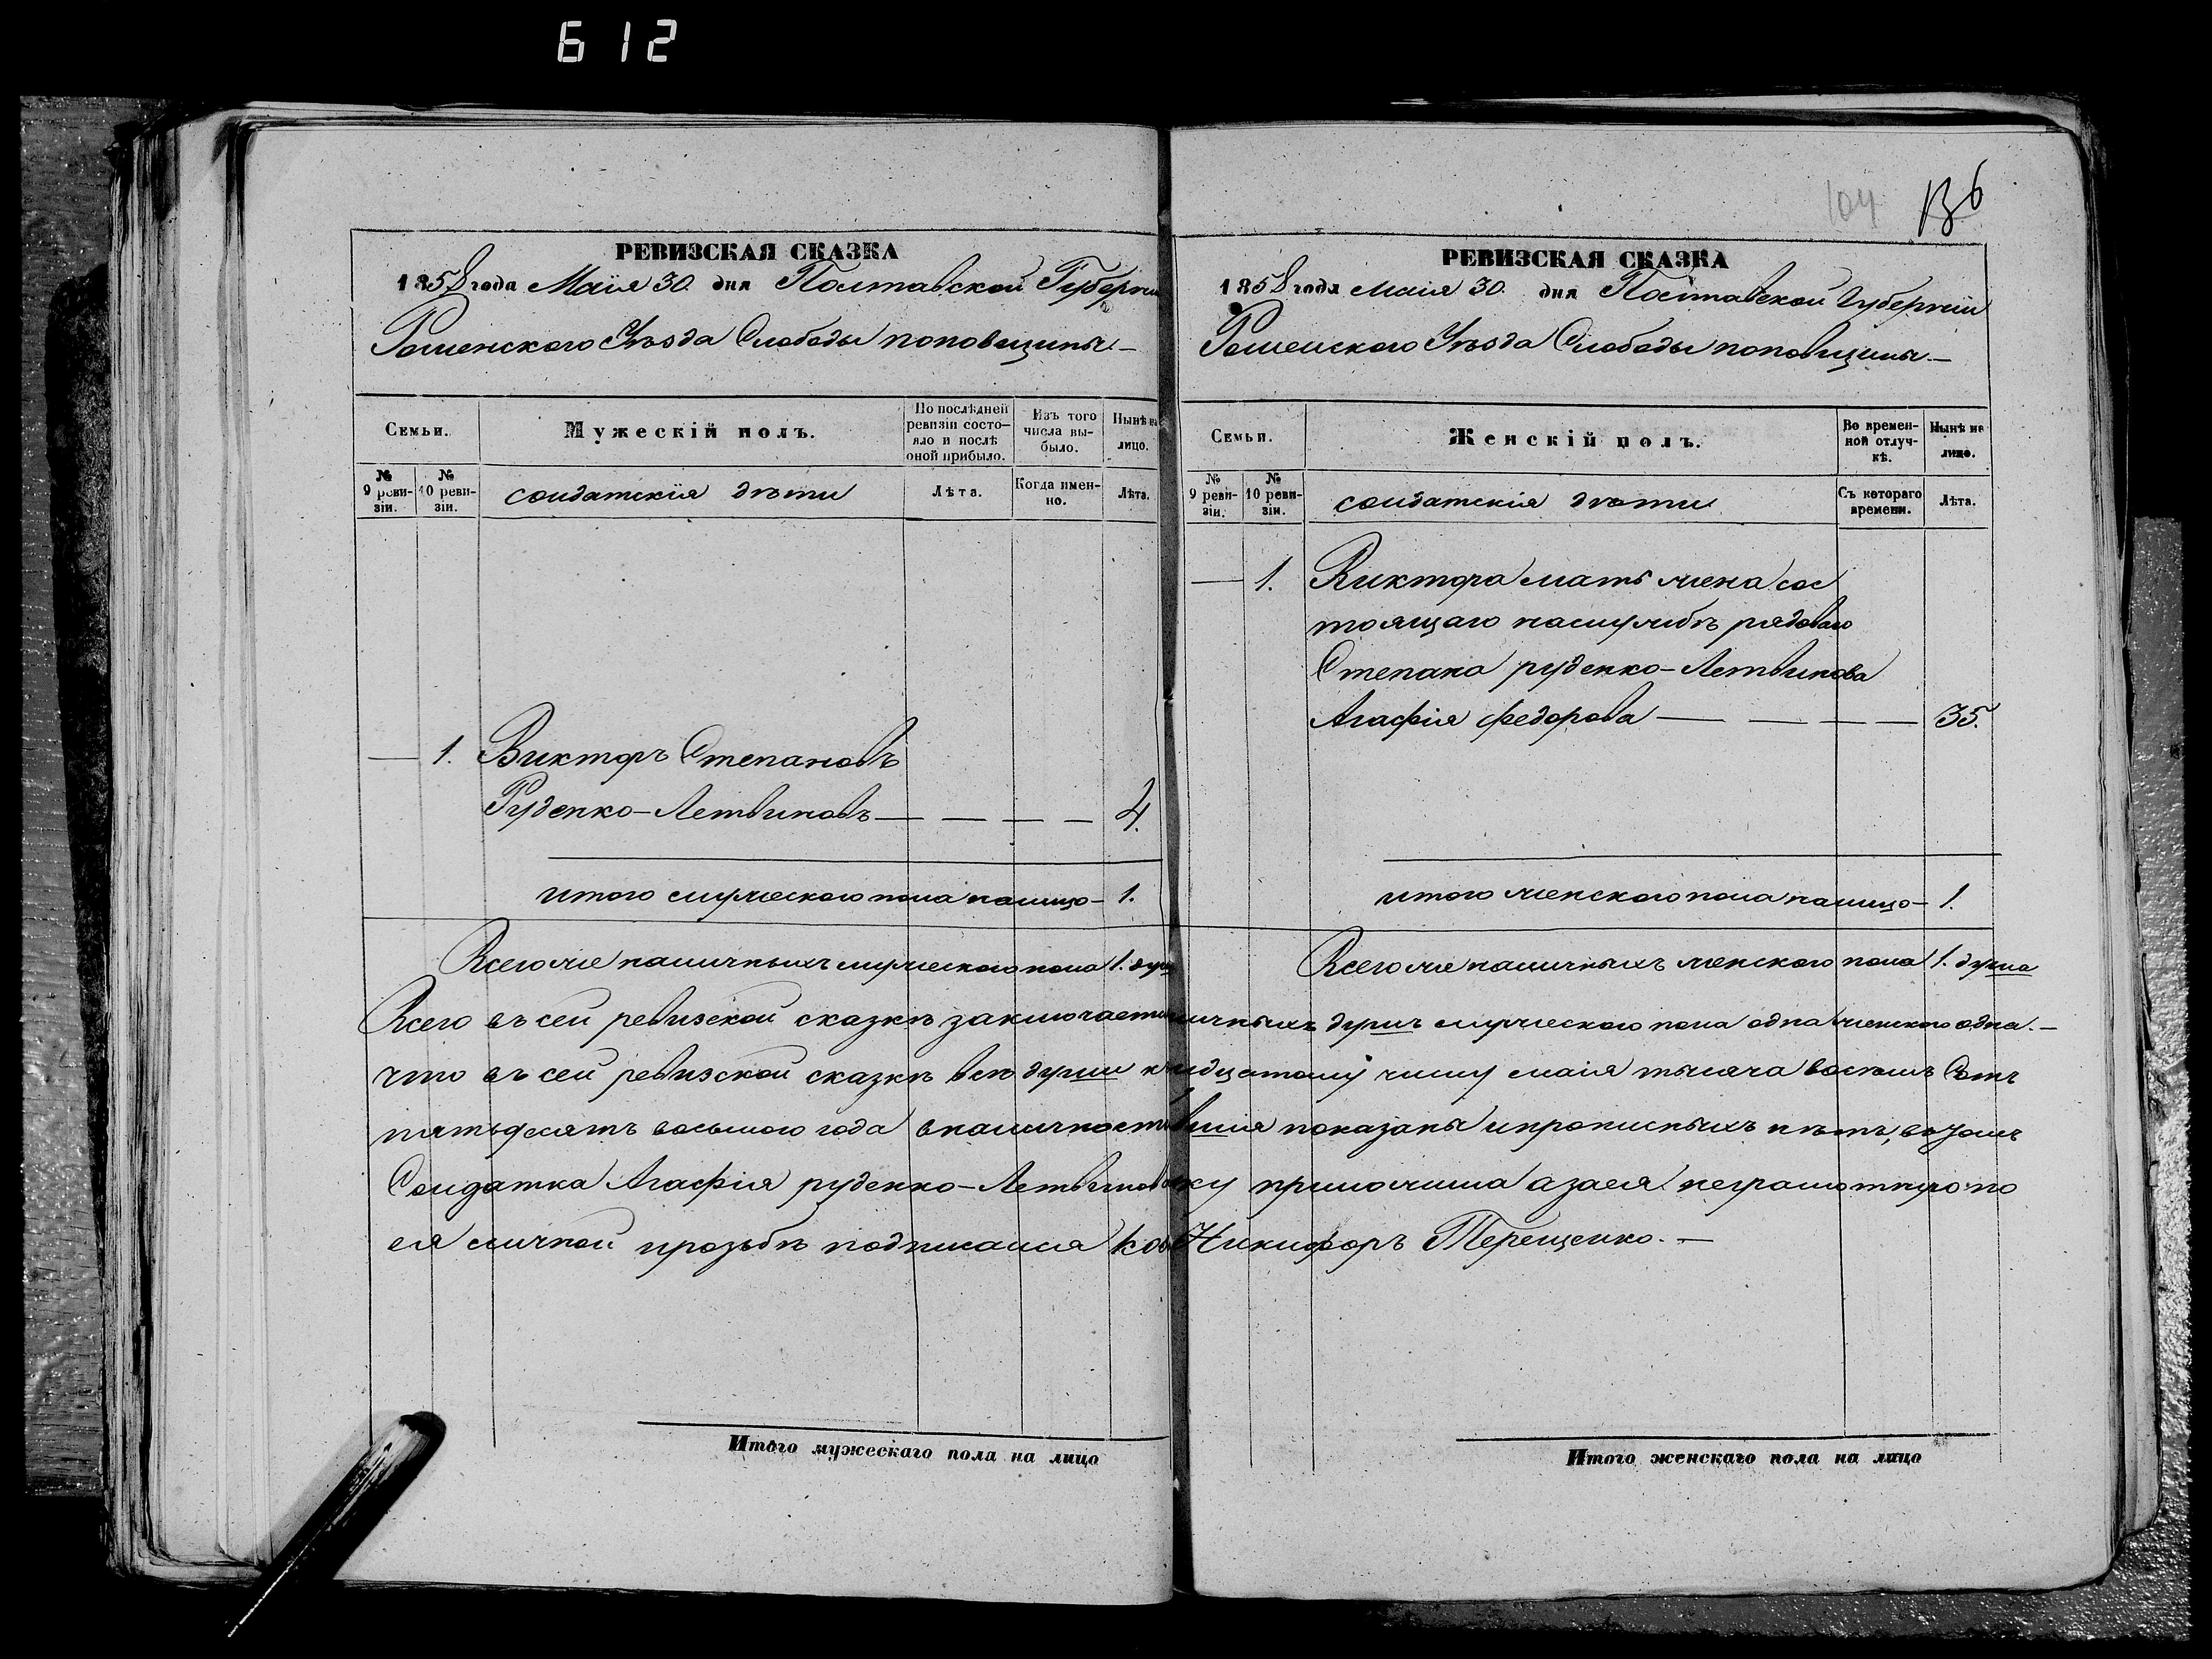 612
104
136
РЕВИЗСКАЯ СКАЗКА
1858 года Маія 30. дня Полтавской Губерніи
Роменского Уѣзда Слободы поповщины —
Семьи.
Мужескій полъ.
По послѣдней ревизіи состояло и послѣ оной прибыло.
Изъ того числа выбыло.
Нынѣ на лицо.
№ 9 ревизіи.
№ 10 ревизіи.
солдатскія дѣти
Лѣта.
Когда именно.
Лѣта.
— 1. Викторъ Степановъ
Руденко-Летвиновъ — — — — 4.
итого мужеского пола налицо — 1.
Всего же наличныхъ мужеского пола 1. душ
РЕВИЗСКАЯ СКАЗКА
1858 года Маія 30. дня Полтавской Губерніи
Роменского Уѣзда Слободы поповщины —
Семьи.
Женскій полъ.
Во временной отлучкѣ.
Нынѣ на лицо.
№ 9 ревизіи.
№ 10 ревизіи.
солдатскія дѣти
Съ котораго времени.
Лѣта.
— 1. Виктора мать жена сос
тоящаго наслужбѣ рядоваго
Степана руденко-Летвинова
Агафія федорова — — — — 35.
итого женского пола налицо — 1.
Всего же наличныхъ женского пола 1. душа
Всего въ сей ревизской сказкѣ заключает личныхъ душъ мужеского пола одна женского одна. —
что въ сей ревизской сказкѣ всѣ души к идцатому числу маія тысяча восемь Сотъ
пятьдесятъ восьмого года вналичности показаны ипрописныхъ нѣтъ, вотомъ
Солдатка Агафія руденко-Летвинова ку приложила азаея неграмотную по
ея личной прозьбѣ подписался Никифоръ Терещенко. —
Итого мужескаго пола на лицо
Итого женскаго пола на лицо